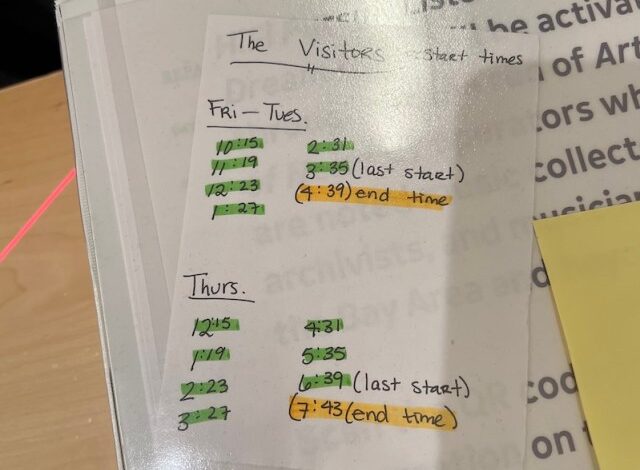 The Visitors start times
FRI – TUES.
10:15 2:31
11:19 3:35 (last start)
12:23 (4:39) end time
1:27
Thurs.
12:15 4:31
1:19 5:35
2:23 6:39 (last start)
3:27 (7:43 (end time)
be activa
of Art
ators wh
collect
archivists, and musician
the Bay Area and
cod
on t